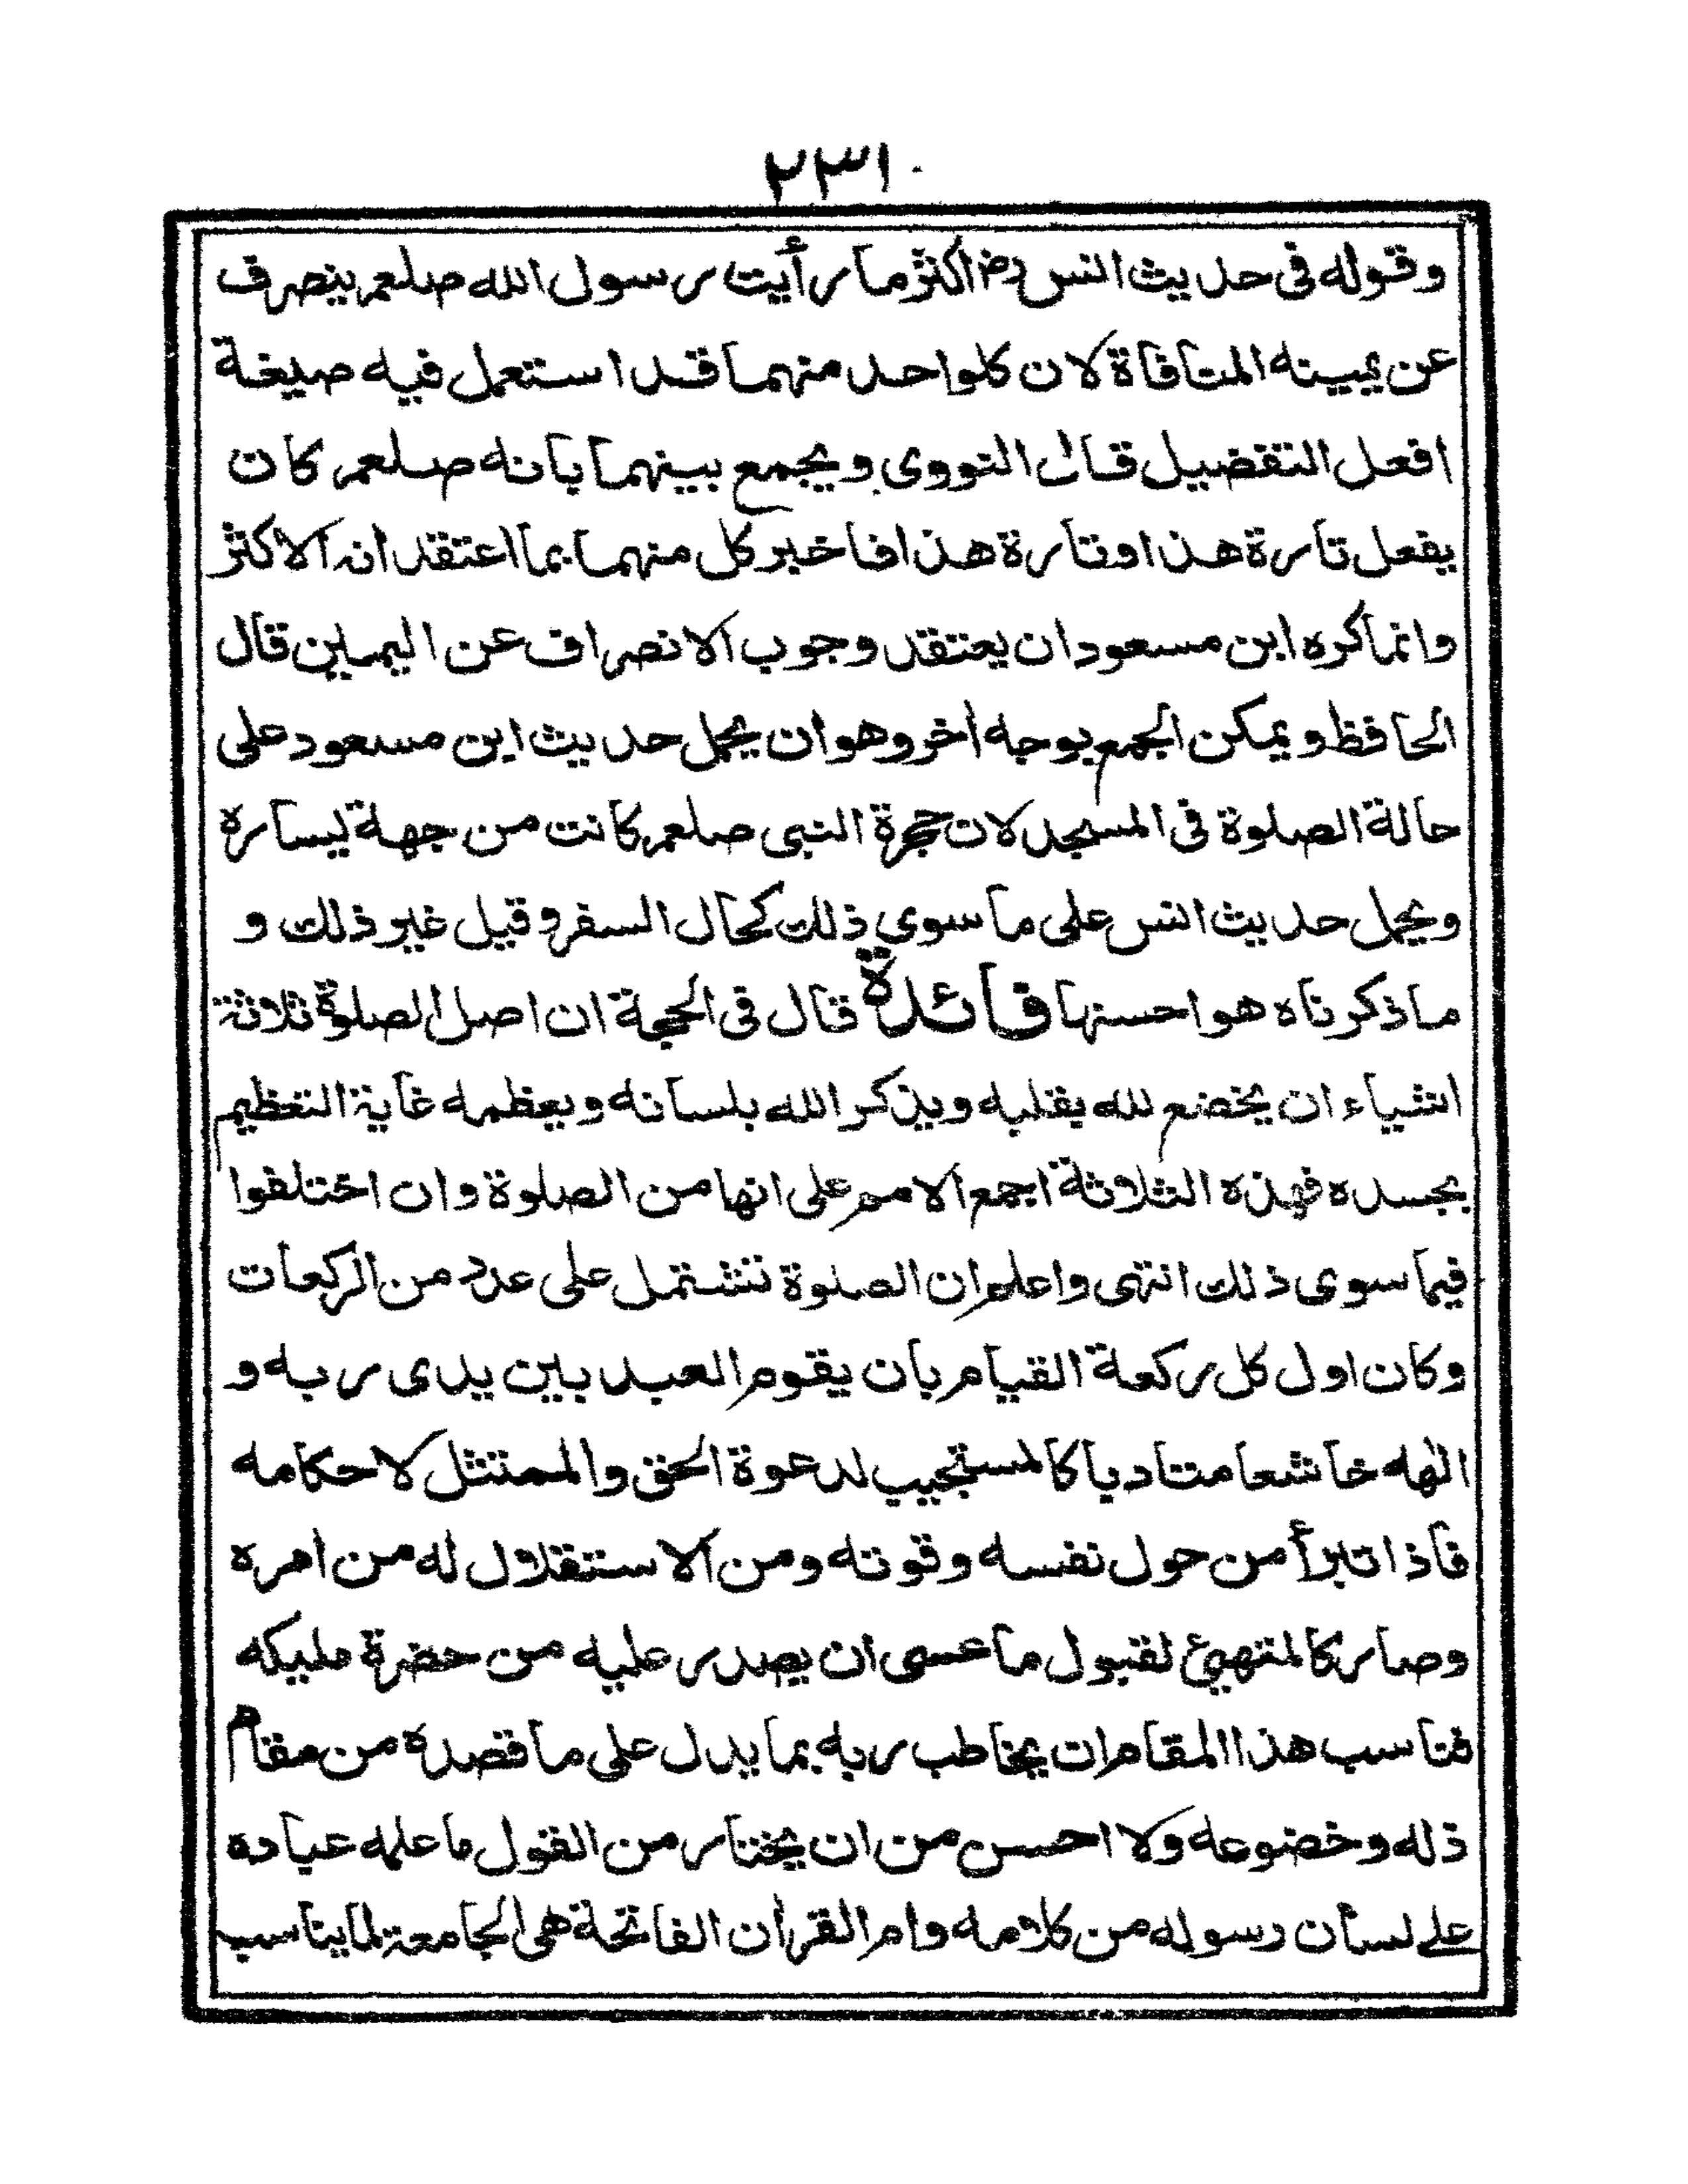 ٢٣١
وقوله فى حديث انس رض اكثر ما رأيت رسول الله صلعم ينصرف
عن يمينه المنافاة لان كلواحد منهما قد استعمل فيه صيغة
افعل التفضيل قال النووى ويجمع بينهما بانه صلعم كان
يفعل تارة هذا وتارة هذا فاخبر كل منهما بما اعتقد انه الاكثر
وانما كره ابن مسعود ان يعتقد وجوب الانصراف عن اليمين قال
الحافظ ويمكن الجمع بوجه اخر وهو ان يحمل حديث ابن مسعود على
حالة الصلوة فى المسجد لان حجرة النبى صلعم كانت من جهة يساره
ويحمل حديث انس على ما سوى ذلك كحال السفر وقيل غير ذلك و
ما ذكرناه هو احسنها فائدة قال فى الحجة ان اصل الصلوة ثلاثة
اشياء ان يخضع لله بقلبه ويذكر الله بلسانه ويعظمه غاية التعظيم
بجسده فهذه الثلاثة اجمع الامم على انها من الصلوة وان اختلفوا
فيما سوى ذلك انتهى واعلم ان الصلوة تشتمل على عدد من الركعات
وكان اول كل ركعة القيام بان يقوم العبد بين يدى ربه و
الٰهه خاشعا متادبا كالمستجيب لدعوة الحق والممتثل لاحكامه
فاذا تبرأ من حول نفسه وقوته ومن الاستقلال له من امره
وصار كالمتهيئ لقبول ما عسى ان يصدر عليه من حضرة مليكه
فناسب هذا المقام ان يخاطب ربه بما يدل على ما قصده من مقام
ذله وخضوعه ولا احسن من ان يختار من القول ما علمه عباده
على لسان رسوله من كلامه وام القرآن الفاتحة هى الجامعة لما يناسب